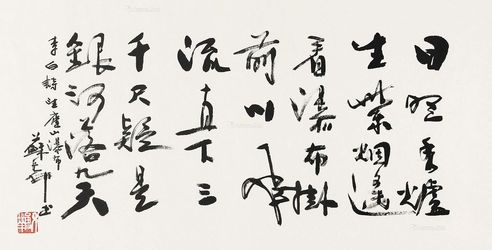 日照香爐
生紫烟遥
看瀑布掛
前川飛
流直下三
千尺疑是
銀河落九天
李白詩望廬山瀑布
蘇